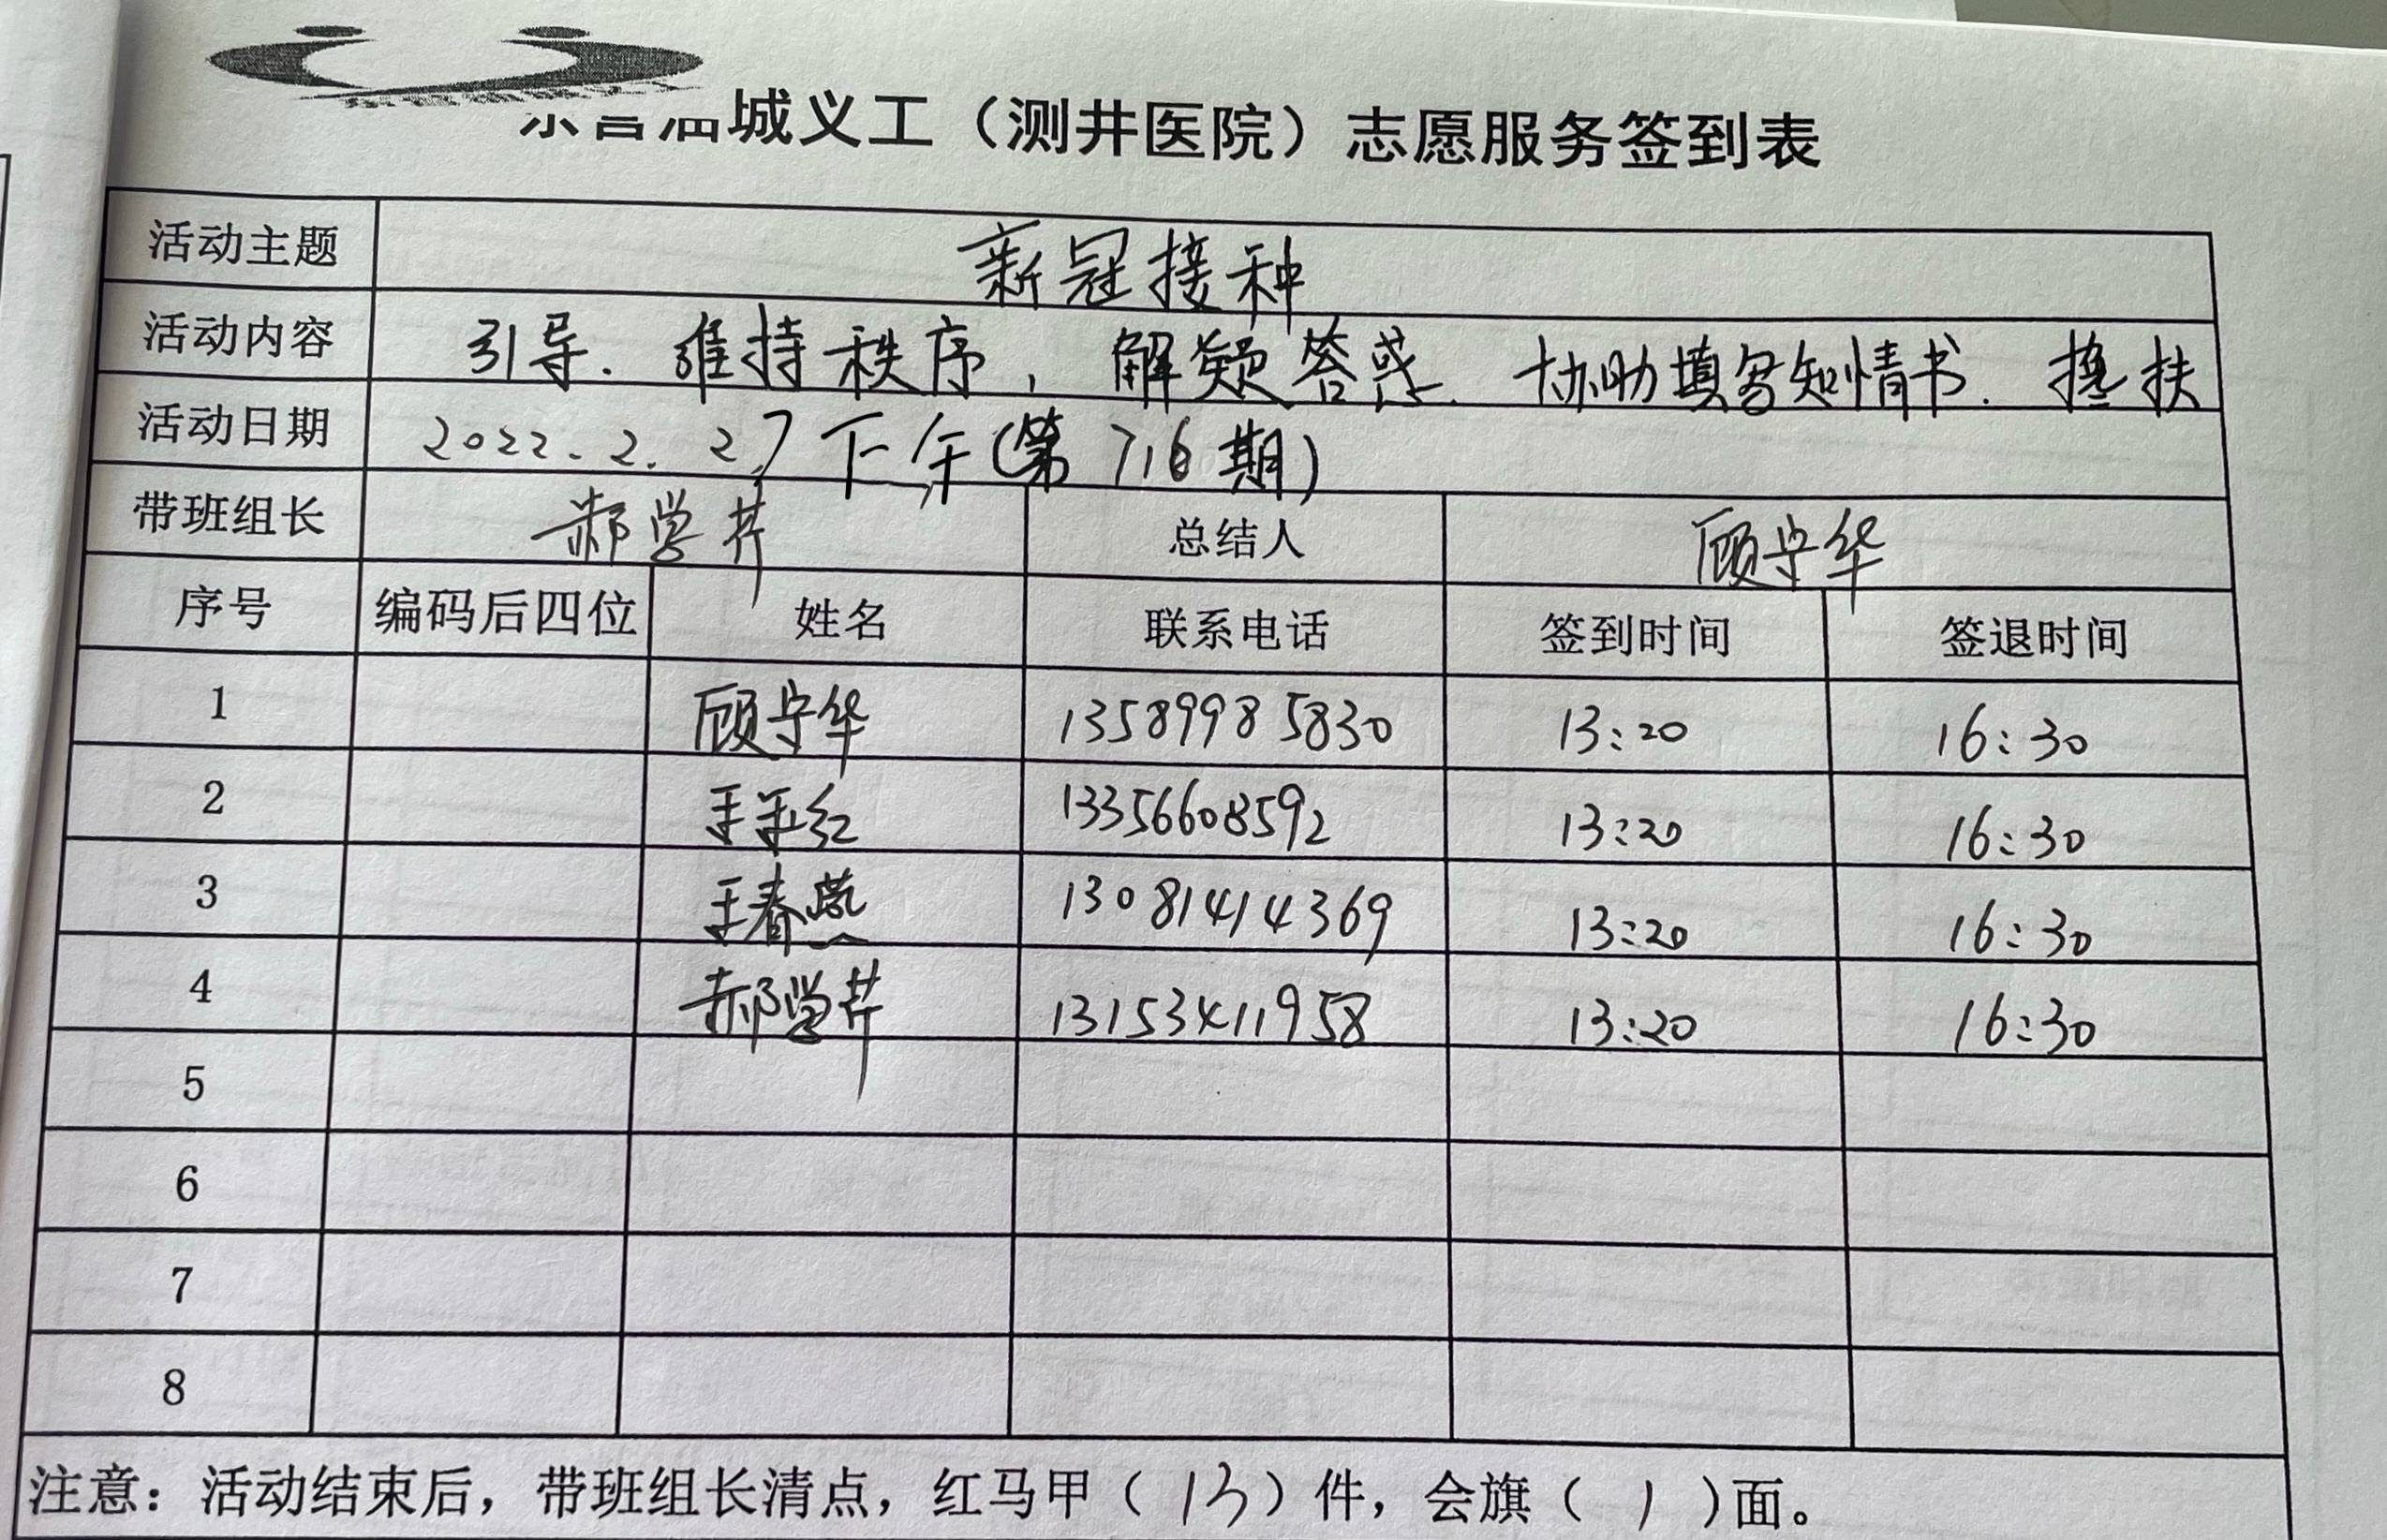 东营油城义工（测井医院）志愿服务签到表
活动主题 新冠接种
活动内容 引导. 维持秩序, 解疑答惑. 协助填写知情书. 搀扶
活动日期 2022.2.27下午(第716期)
带班组长 郝学芹 总结人 顾守华
序号 编码后四位 姓名 联系电话 签到时间 签退时间
1 顾守华 13589985830 13:20 16:30
2 王玉红 13356608592 13:20 16:30
3 王春燕 13081414369 13:20 16:30
4 郝学芹 13153411958 13:20 16:30
5
6
7
8
注意：活动结束后，带班组长清点，红马甲（13）件，会旗（1）面。